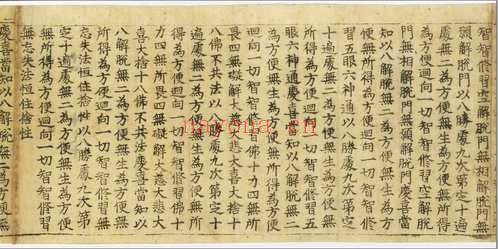 智智修習空解脫門無相解脫門無
願解脫門以八勝處九次第定十遍
處無二為方便無生為方便無所得
為方便迴向一切智智修習空解脫
門無相解脫門無願解脫門慶喜當
知以八解脫無二為方便無生為方
便無所得為方便迴向一切智智修
習五眼六神通以八勝處九次第定
十遍處無二為方便無生為方便無
所得為方便迴向一切智智修習五
眼六神通慶喜當知以八解脫無二
為方便無生為方便無所得為方便
迴向一切智智修習佛十力四無所
畏四無礙解大慈大悲大喜大捨十
八佛不共法以八勝處九次第定十
遍處無二為方便無生為方便無所
得為方便迴向一切智智修習佛十
力四無所畏四無礙解大慈大悲大
喜大捨十八佛不共法慶喜當知以
八解脫無二為方便無生為方便無
所得為方便迴向一切智智修習無
忘失法恒住捨性以八勝處九次第
定十遍處無二為方便無生為方便
無所得為方便迴向一切智智修習
無忘失法恒住捨性
慶喜當知以八解脫無二為方便無
nayona.cn